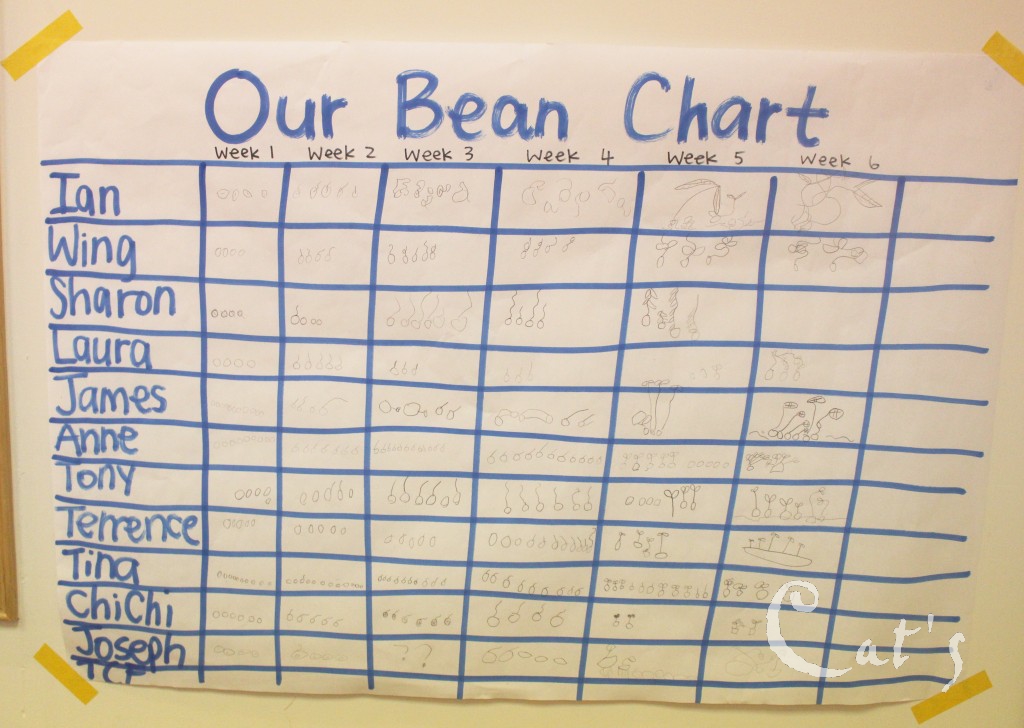 Our Bean Chart
Week 1 Week 2 Week 3 Week 4 Week 5 Week 6
Ian
Wing
Sharon
Laura
James
Anne
Tony
Terrence
Tina
ChiChi
Joseph
? ?
Cat's